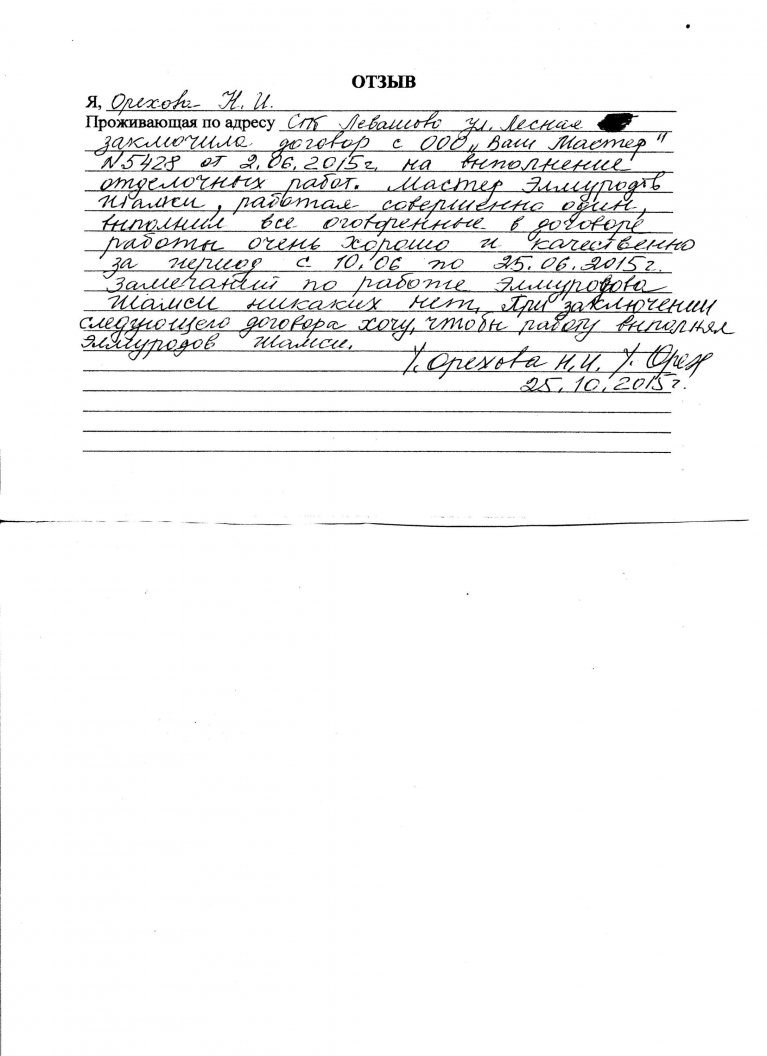 ОТЗЫВ
Я, Орехова Н. И.
Проживающая по адресу СПб Левашово ул. Лесная
заключила договор с ООО „Ваш Мастер"
N5428 от 2.06.2015г. на выполнение
отделочных работ. Мастер Элмуродов
Шамси, работая совершенно один,
выполнил все оговоренные в договоре
работы очень хорошо и качественно
за период с 10.06 по 25.06.2015г.
Замечаний по работе Элмуродова
Шамси никаких нет. При заключении
следующего договора хочу, чтобы работу выполнял
Элмуродов Шамси.
Орехова Н.И. Орех
25.10.2015г.